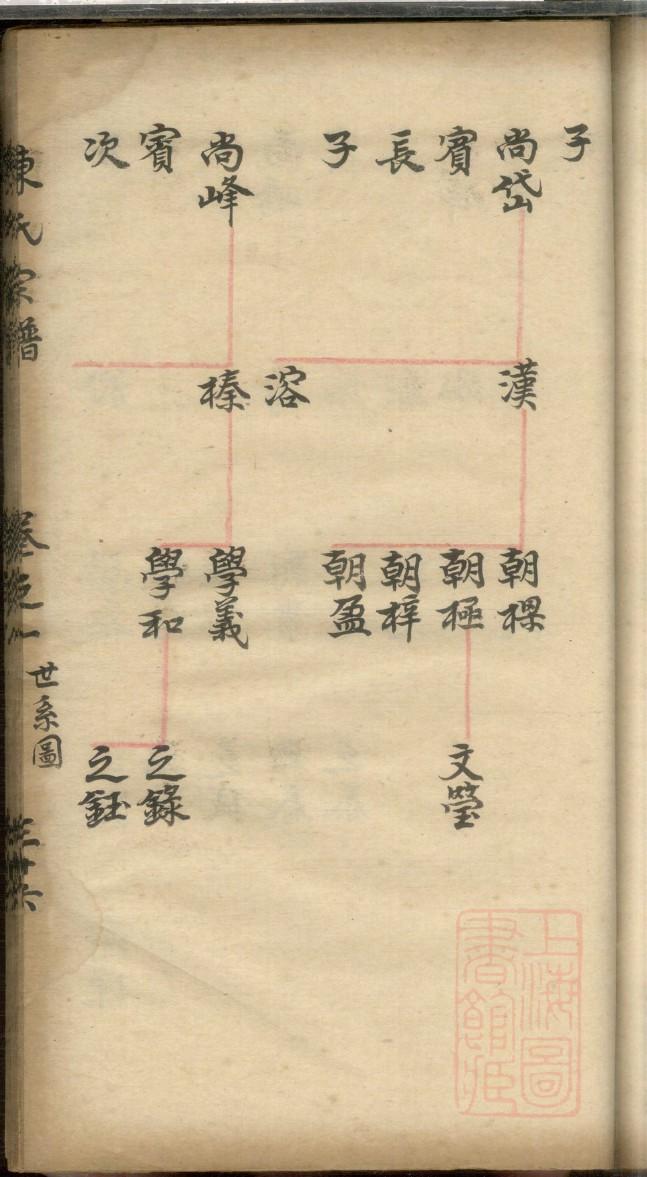 子
尚岱
賓
長
子
尚峰
賓
次
漢
溶
榛
朝棵
朝極
朝梓
朝盈
學義
學和
文瑩
之錄
之鈺
陳氏宗譜
世系圖
上海圖
書館藏